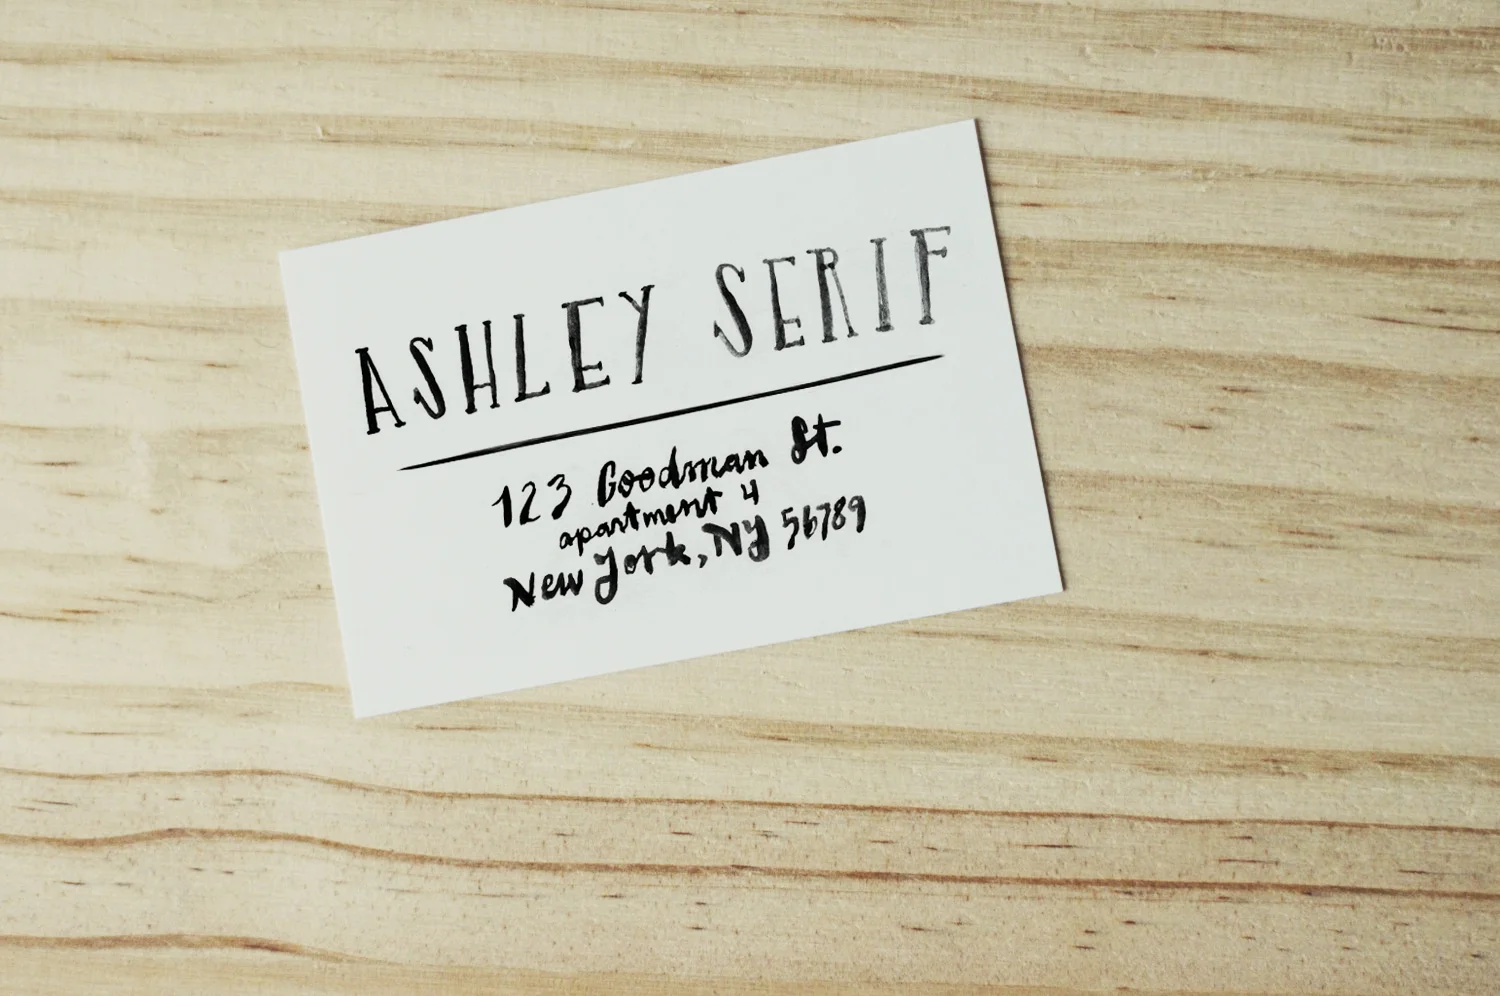 ASHLEY SERIF
123 Goodman St.
apartment 4
New York, NY 56789